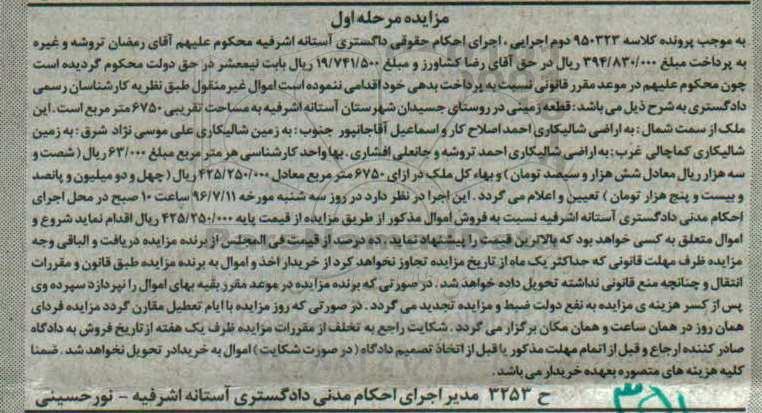 مزایده مرحله اول
به موجب پرونده کلاسه ۹۵۰۳۲۳ دوم اجرایی ، اجرای احکام حقوقی دادگستری آستانه اشرفیه محکوم علیهم آقای رمضان تروشه و غیره
به پرداخت مبلغ ۳۹۴/۸۳۰/۰۰۰ ریال در حق آقای رضا کشاورز و مبلغ ۱۹/۷۴۱/۵۰۰ ریال بابت نیمعشر در حق دولت محکوم گردیده است
چون محکوم علیهم در موعد مقرر قانونی نسبت به پرداخت بدهی خود اقدامی ننموده است اموال غیرمنقول طبق نظریه کارشناسان رسمی
دادگستری به شرح ذیل می باشد : قطعه زمینی در روستای جسیدان شهرستان آستانه اشرفیه به مساحت تقریبی ۶۷۵۰ متر مربع است . این
ملک از سمت شمال : به اراضی شالیکاری احمد اصلاح کار و اسماعیل آقاجانپور جنوب : به زمین شالیکاری علی موسی نژاد شرق : به زمین
شالیکاری کماچالی غرب : به اراضی شالیکاری احمد تروشه و جانعلی افشاری . بها واحد کارشناسی هر متر مربع مبلغ ۶۳/۰۰۰ ریال ( شصت و
سه هزار ریال معادل شش هزار و سیصد تومان ) و بهاء کل ملک در ازای ۶۷۵۰ متر مربع معادل ۴۲۵/۲۵۰/۰۰۰ ریال ( چهل و دو میلیون و پانصد
و بیست و پنج هزار تومان ) تعیین و اعلام می گردد . این اجرا در نظر دارد در روز سه شنبه مورخه ۹۶/۷/۱۱ ساعت ۱۰ صبح در محل اجرای
احکام مدنی دادگستری آستانه اشرفیه نسبت به فروش اموال مذکور از طریق مزایده از قیمت پایه ۴۲۵/۲۵۰/۰۰۰ ریال اقدام نماید شروع و
اموال متعلق به کسی خواهد بود که بالاترین قیمت را پیشنهاد نماید . ده درصد از قیمت فی المجلس از برنده مزایده دریافت و الباقی وجه
مزایده ظرف مهلت قانونی که حداکثر یک ماه از تاریخ مزایده تجاوز نخواهد کرد از خریدار اخذ و اموال به برنده مزایده طبق قانون و مقررات
انتقال و چنانچه منع قانونی نداشته تحویل داده خواهد شد . در صورتی که برنده مزایده در موعد مقرر بقیه بهای اموال را نپردازد سپرده وی
پس از کسر هزینه ی مزایده به نفع دولت ضبط و مزایده تجدید می گردد . در صورتی که روز مزایده با ایام تعطیل مقارن گردد مزایده فردای
همان روز در همان ساعت و همان مکان برگزار می گردد . شکایت راجع به تخلف از مقررات مزایده ظرف یک هفته از تاریخ فروش به دادگاه
صادر کننده ارجاع و قبل از اتمام مهلت مذکور یا قبل از اتخاذ تصمیم دادگاه ( در صورت شکایت ) اموال به خریدار تحویل نخواهد شد . ضمنا
کلیه هزینه های متصوره بعهده خریدار می باشد .
ح ۳۲۵۳ مدیر اجرای احکام مدنی دادگستری آستانه اشرفیه - نورحسینی